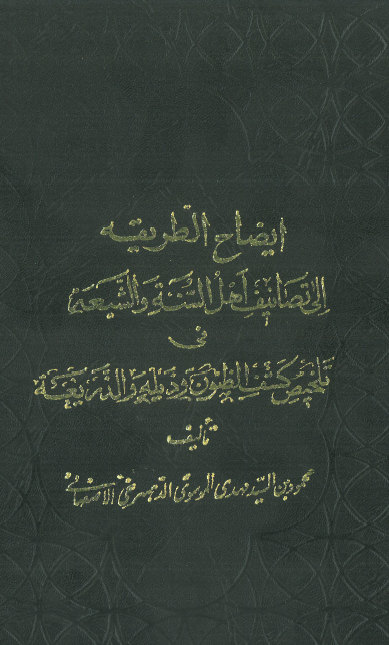 ايضاح الطريقه
إلى تصانيف أهل السنة والشيعة
فى
تلخيص كشف الظنون وذيله والذريعة
تأليف
محمود بن السيد مهدى الموسوى الدهسرخى الاصفهانى